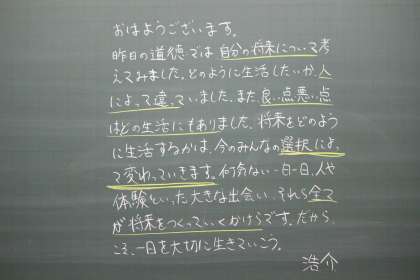 おはようございます。
昨日の道徳では自分の将来について考
えてみました。どのように生活したいか、人
によって違っていました。また、良い点悪い点
はどの生活にもありました。将来をどのよう
に生活するかは、今のみんなの選択によっ
て変わっていきます。何気ない一日一日、人や
体験といった大きな出会い、それら全て
が将来をつくっていくかけらです。だから
こそ、一日を大切に生きていこう。
浩介